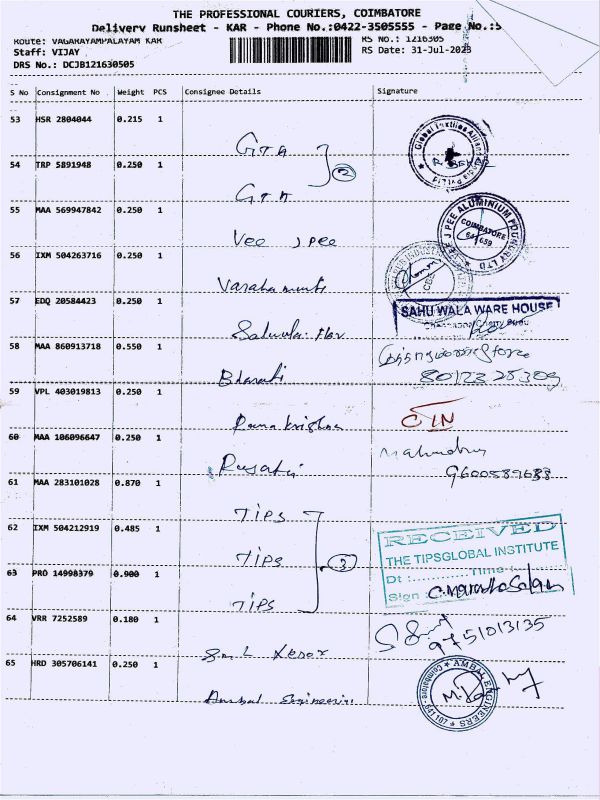 THE PROFESSIONAL COURIERS, COIMBATORE
Delivery Runsheet - KAR - Phone No.:0422-3505555 - Page No.:5
Route: VAGARAYAMPALAYAM KAR
RS No.: 1216305
Staff: VIJAY
RS Date: 31-Jul-2023
DRS No.: DCJB121630505
S No Consignment No Weight PCS Consignee Details Signature
53 HSR 2804044 0.215 1
GTA
Global Textiles Alliance India Pvt Ltd
54 TRP 5891948 0.250 1
2
GTA
55 MAA 569947842 0.250 1
Vee J Pee
VEE J PEE ALUMINIUM FOUNDRY LTD
COIMBATORE
641 659
56 IXM 504263716 0.250 1
57 EDQ 20584423 0.250 1
SAHUWALA WARE HOUSE
58 MAA 860913718 0.550 1
Bharati
59 VPL 403019813 0.250 1
Ramakrishna
60 MAA 106096647 0.250 1
9600589688
61 MAA 283101028 0.870 1
TIPS
62 IXM 504212919 0.485 1
TIPS
3
RECEIVED
THE TIPSGLOBAL INSTITUTE
Dt :............Time :............
Sign :
63 PRD 14998379 0.900 1
TIPS
64 VRR 7252589 0.180 1
9751013135
65 HRD 305706141 0.250 1
Ambal Engineering
AMBAL ENGINEERS
Coimbatore 641 107